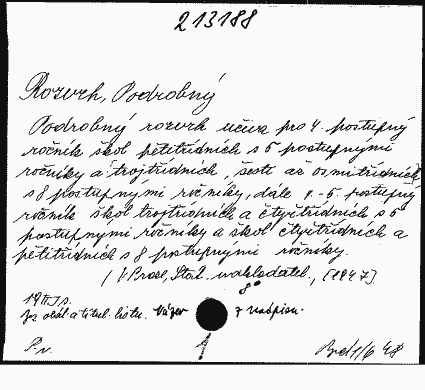 213188
Rozvrh, Podrobný
Podrobný rozvrh učiva pro 4. postupný
ročník škol pětitřídních s 5 postupnými
ročníky a trojtřídních, šesti až osmitřídních
s 8 postupnými ročníky, dále 1.-5. postupný
ročník škol trojtřídních a čtyřtřídních s 5
postupnými ročníky a škol čtyřtřídních a
pětitřídních s 8 postupnými ročníky.
/V Praze, Stát. nakladatel., [1947]
8°
19 s.
Bez obál. a titul. listu. Název z nadpisu.